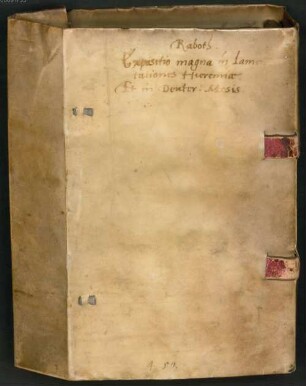 Raboth
Expositio magna in Lamen
tationes Hieremiae
Et in Deuter: Mosis